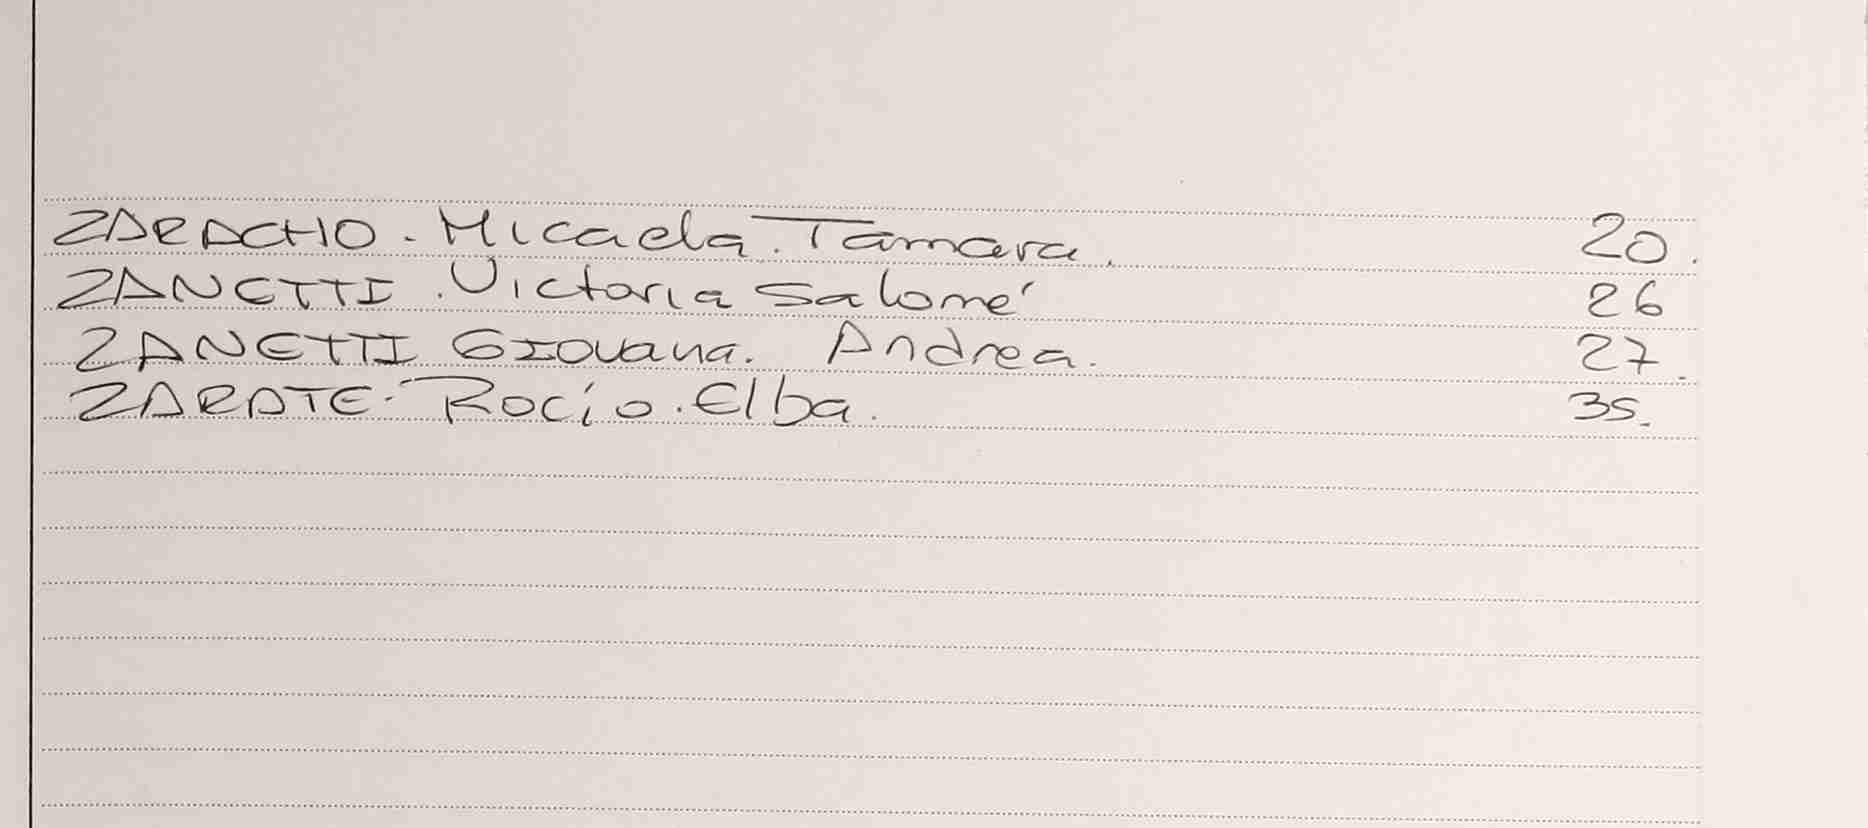 ZARACHO. Micaela. Tamara. 20.
ZANETTI. Victoria Salomé 26
ZANETTI Giovana. Andrea. 27.
ZARATE. Rocío. Elba. 35.